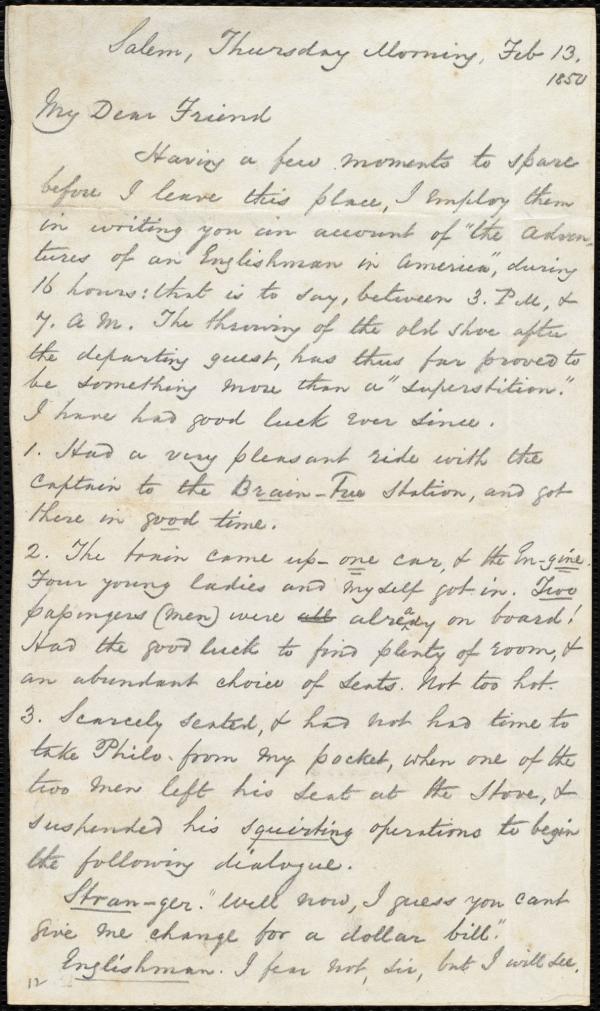 Salem, Thursday Morning, Feb 13,
1850
My Dear Friend
Having a few moments to spare
before I leave this place, I employ them
in writing you an account of "the adven-
tures of an Englishman in America", during
16 hours: that is to say, between 3. P.M, &
7. A.M. The throwing of the old shoe after
the departing guest, has thus far proved to
be something more than a "superstition."
I have had good luck ever since.
1. Had a very pleasant ride with the
Captain to the Brain-Tree Station, and got
there in good time.
2. The train came up- one car, & the En-gine.
Four young ladies and myself got in. Two
passengers (men) were all already on board!
Had the good luck to find plenty of room, &
an abundant choice of seats. Not too hot.
3. Scarcely seated, & had not had time to
take Philo. from my pocket, when one of the
two men left his seat at the stove, &
suspended his squirting operations to begin
the following dialogue.
Stran-ger. "Well now, I guess you cant
give me change for a dollar bill."
Englishman. I fear not, sir, but I will see.
12